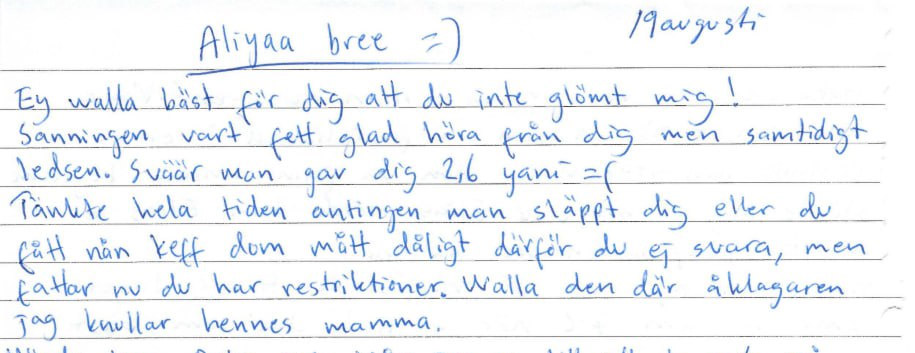 19 augusti
Aliyaa bree =)
Ey walla bäst för dig att du inte glömt mig!
Sanningen vart fett glad höra från dig men samtidigt
ledsen. Sväär man gav dig 2,6 yani =(
Tänkte hela tiden antingen man släppt dig eller du
fått nån keff dom mått dåligt därför du ej svara, men
fattar nu du har restriktioner. Walla den där åklagaren
jag knullar hennes mamma.